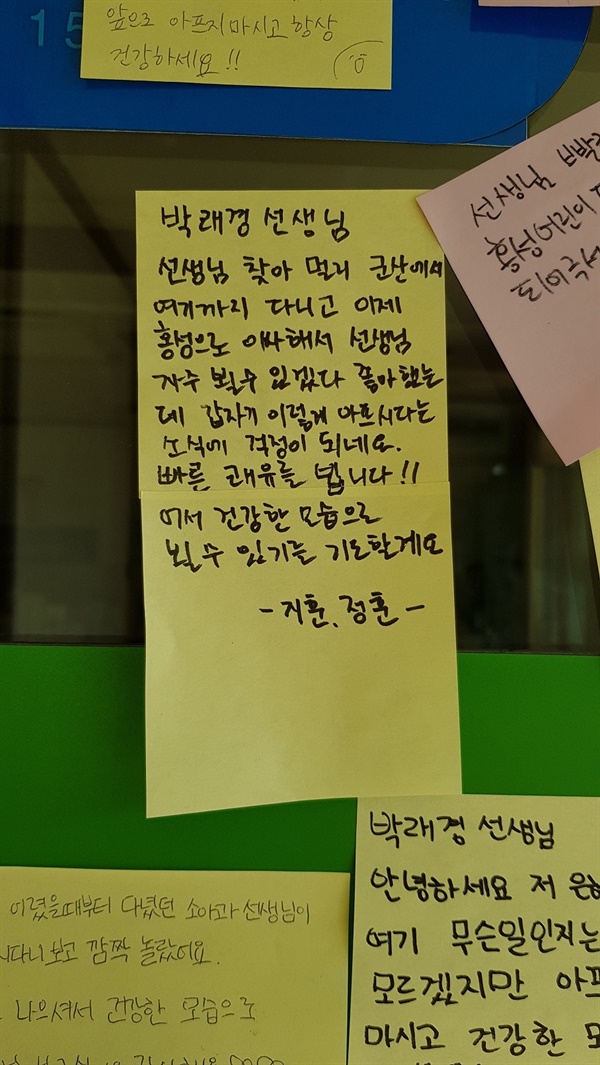 15
앞으로 아프지마시고 항상
건강하세요!!
박래경 선생님
선생님 찾아 멀리 군산에서
여기까지 다니고 이제
홍성으로 이사해서 선생님
자주 뵐수 있겠다 좋아했는
데 갑자기 이렇게 아프시다는
소식에 걱정이 되네요.
빠른 쾌유를 빕니다!!
어서 건강한 모습으로
뵐 수 있기를 기도할게요
- 지훈, 정훈 -
선생님
홍성어린이
박래경 선생님
안녕하세요 저 은
여기 무슨일인지는
모르겠지만 아프
마시고 건강한 모
어렸을때부터 다녔던 소아과 선생님이
시다니보고 깜짝 놀랐어요.
나으셔서 건강한 모습으로